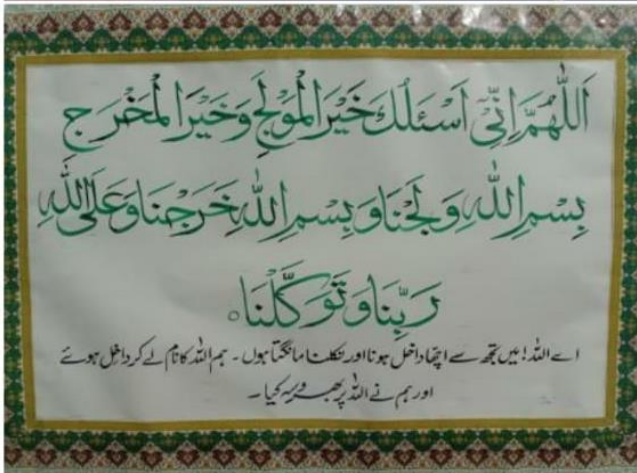 اَللّٰهُمَّ اِنِّیْٓ اَسْئَلُكَ خَيْرَ الْمَوْلَجِ وَخَيْرَ الْمَخْرَجِ
بِسْمِ اللّٰهِ وَلَجْنَا وَ بِسْمِ اللّٰهِ خَرَجْنَا وَعَلَی اللّٰهِ
رَبِّنَا وَ تَوَكَّلْنَا
اے اللہ! میں تجھ سے اچھا داخل ہونا اور نکلنا مانگتا ہوں۔ ہم اللہ کا نام لے کر داخل ہوئے
اور ہم نے اللہ پر بھروسہ کیا۔